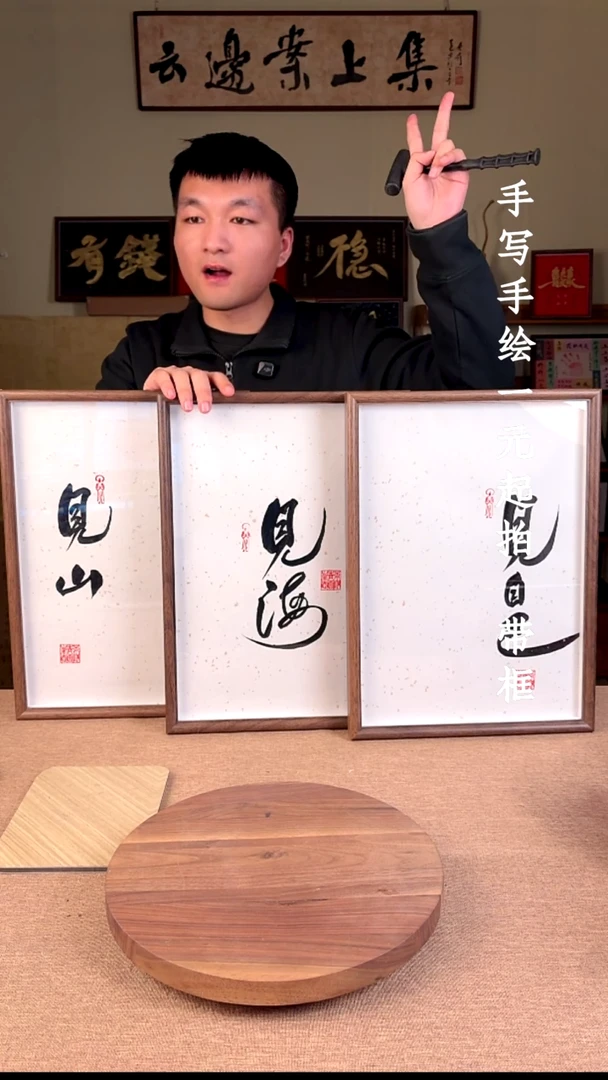 云邊案上集
有錢
稳
見山
見海
見自
手写手绘一元起拍带框